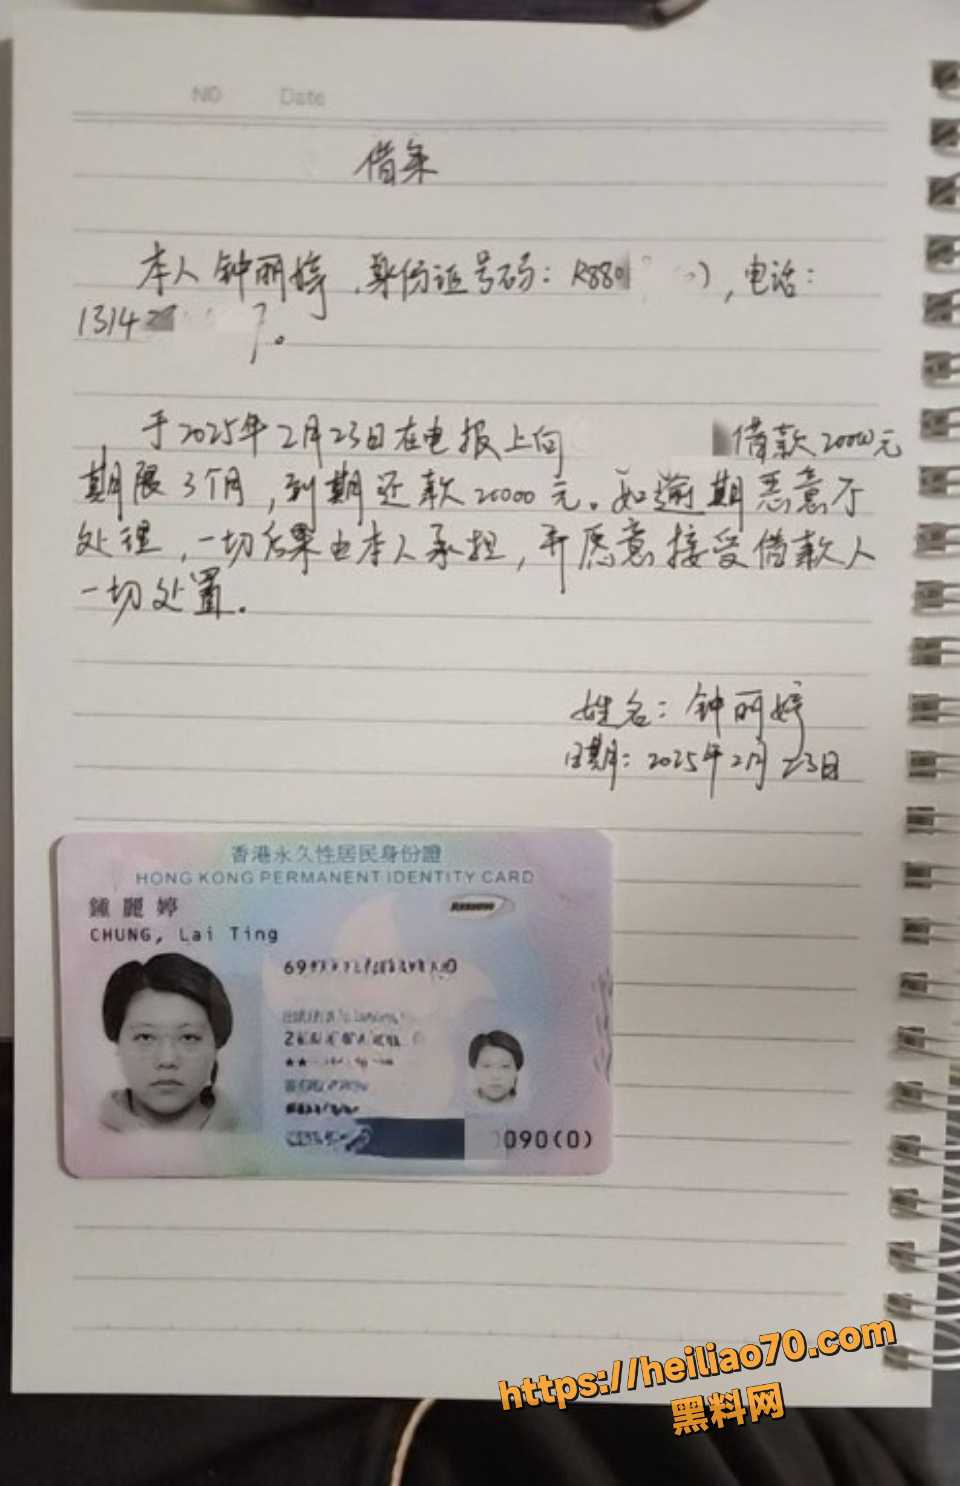 NO Date
借条
本人钟丽婷,身份证号码:R880 ),电话:
1314 7。
于2025年2月23日在电报上向 借款20000元
期限3个月,到期还款20000元。如逾期恶意不
处理,一切后果由本人承担,并愿意接受借款人
一切处置。
姓名:钟丽婷
日期:2025年2月23日
香港永久性居民身份證
HONG KONG PERMANENT IDENTITY CARD
鍾麗婷
CHUNG, Lai Ting
090(0)
https://heiliao70.com
黑料网